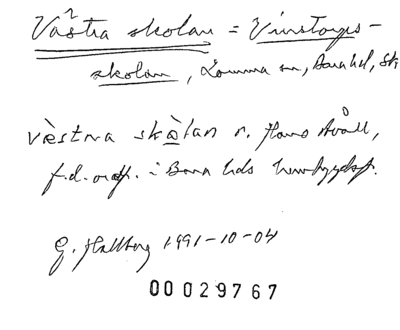 Västra skolan = Vinstorps-
skolan, Lomma sn, Bara hd, Sk
vèstra skò̱lan n. Hans Avåll,
f.d. ordf. i Bara hds hembygdsf.
G. Hallberg 1991-10-04
00029767